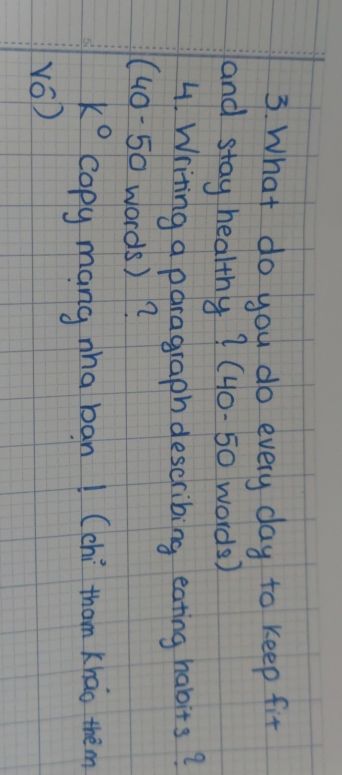 3. What do you do every day to keep fit
and stay healthy? (40-50 words)
4. Writing a paragraph describing eating habits?
(40-50 words)?
K° copy mạng nha bạn! (chỉ tham khảo thêm
vô)